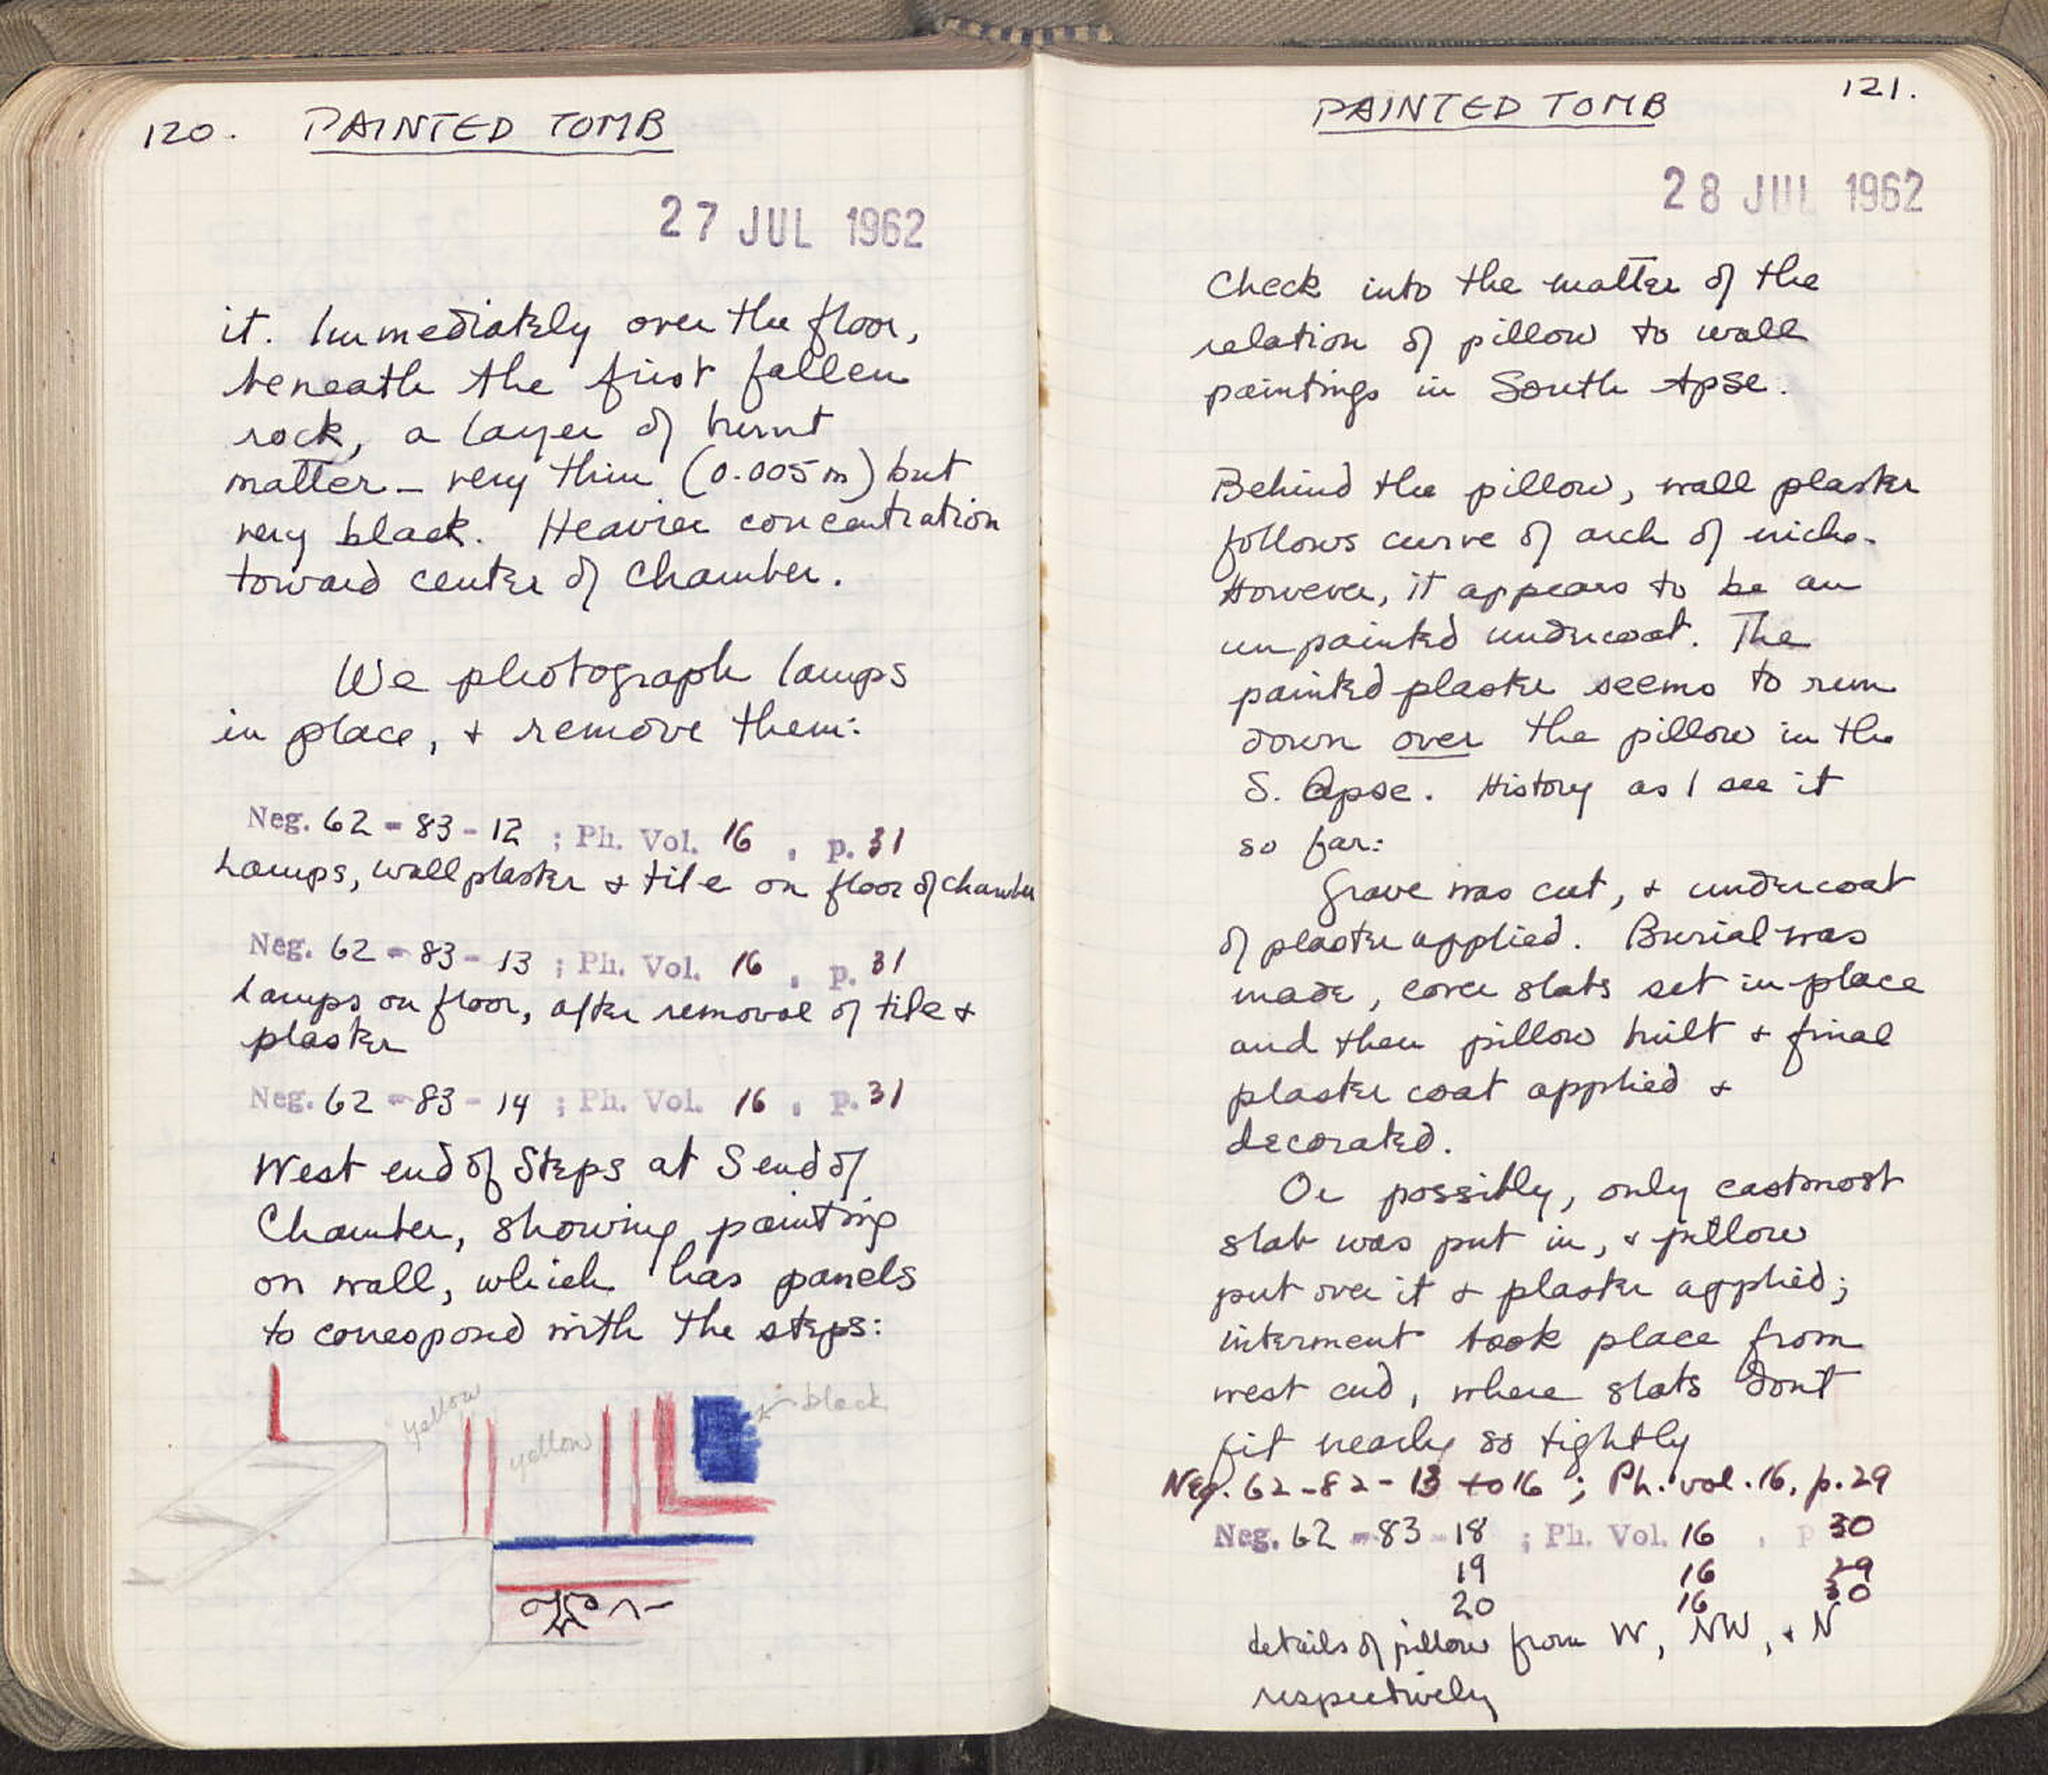 120. PAINTED TOMB
27 JUL 1962
it. Immediately over the floor,
beneath the first fallen
rock, a layer of burnt
matter – very thin (0.005 m) but
very black. Heavier concentration
toward center of chamber.
We photograph lamps
in place, + remove them:
Neg. 62 - 83 - 12 ; Ph. Vol. 16 , p. 31
Lamps, wall plaster + tile on floor of chamber
Neg. 62 - 83 - 13 ; Ph. Vol. 16 , p. 31
Lamps on floor, after removal of tile +
plaster
Neg. 62 - 83 - 14 ; Ph. Vol. 16 , p. 31
West end of Steps at S end of
Chamber, showing painting
on wall, which has panels
to correspond with the steps:
yellow
yellow
black
PAINTED TOMB 121.
28 JUL 1962
Check into the matter of the
relation of pillow to wall
paintings in South Apse.
Behind the pillow, wall plaster
follows curve of arch of niche.
However, it appears to be an
unpainted undercoat. The
painted plaster seems to run
down over the pillow in the
S. Apse. History as I see it
so far:
Grave was cut, + undercoat
of plaster applied. Burial was
made, cover slabs set in place
and then pillow built + final
plaster coat applied +
decorated.
Or possibly, only eastmost
slab was put in, + pillow
put over it + plaster applied;
interment took place from
west end, where slabs dont
fit nearly so tightly
Neg. 62 - 82 - 13 to 16 ; Ph. vol. 16, p. 29
Neg. 62 - 83 - 18 ; Ph. Vol. 16 , p 30
19 16 29
20 16 30
details of pillow from W, NW, + N
respectively